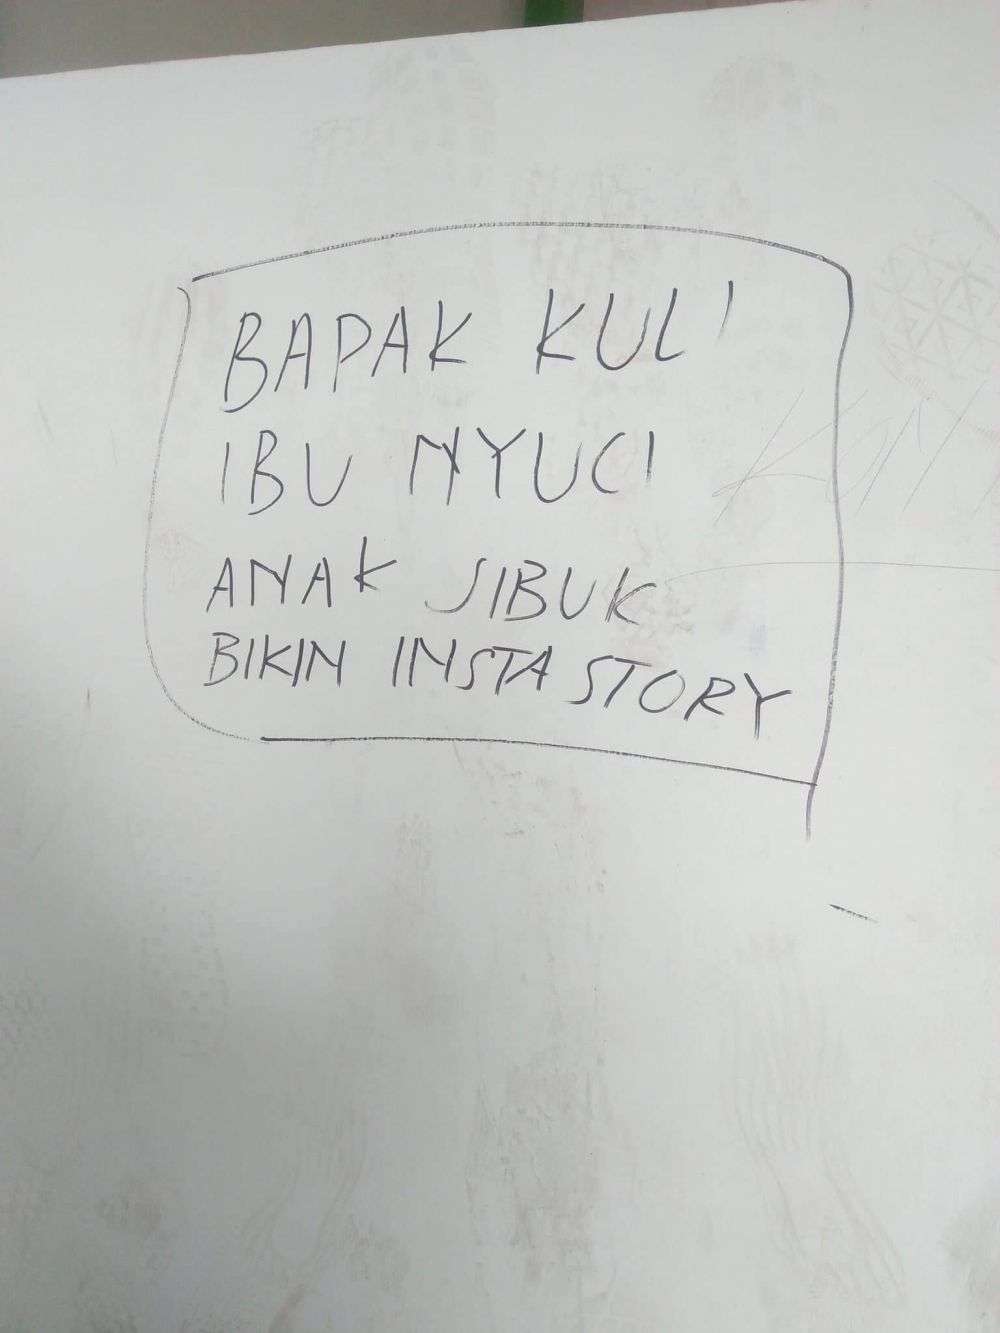 BAPAK KULI
IBU NYUCI
ANAK SIBUK
BIKIN INSTA STORY